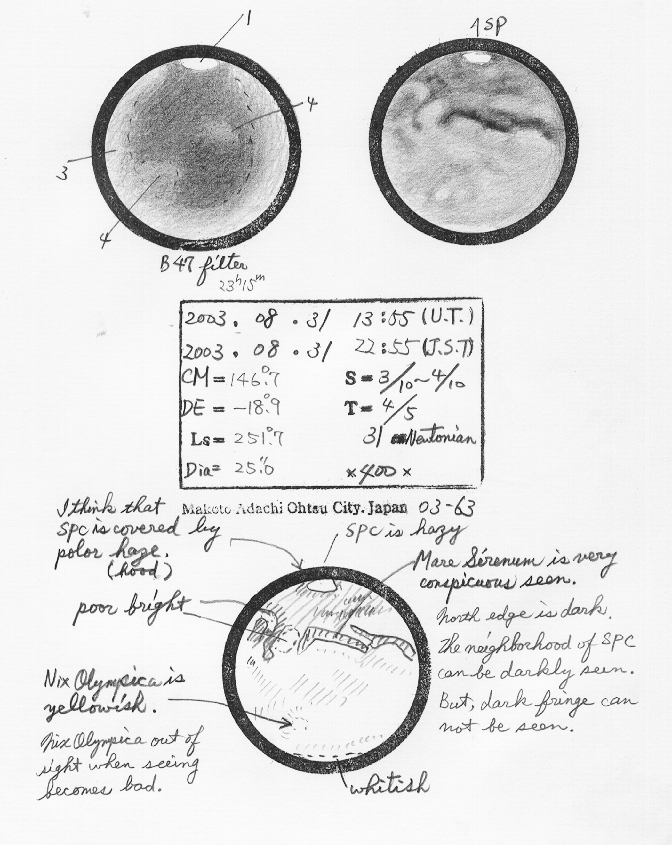 1
1 SP
4
3
4
B47 filter
23h15m
2003. 08. 31 13:55 (U.T.)
2003. 08. 31 22:55 (J.S.T)
CM = 146°.7 S = 3/10~4/10
DE = -18°.9 T = 4/5
Ls = 251°.7 31 cm Newtonian
Dia = 25".0 ×400×
Makoto Adachi Ohtsu City. Japan 03-63
I think that
SPC is covered by
polor haze.
(hood)
SPC is hazy
Mare Sérenum is very
conspicuous seen.
poor bright
North edge is dark.
The neighborhood of SPC
can be darkly seen.
But, dark fringe can
not be seen.
Nix Olympica is
yellowish.
Nix Olympica out of
sight when seeing
becomes bad.
whitish